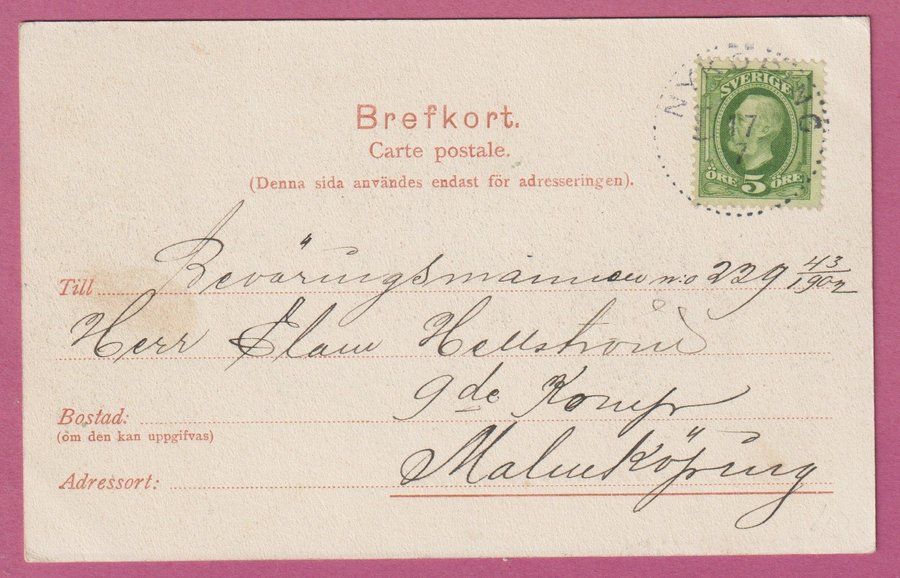 Brefkort.
Carte postale.
(Denna sida användes endast för adresseringen).
NYKÖPING
17
7
SVERIGE
ÖRE 5 ÖRE
Till Beväringsmannen no 239 43/1902
Herr Hellström
9de Komp
Bostad:
(om den kan uppgifvas)
Malmköping
Adressort: